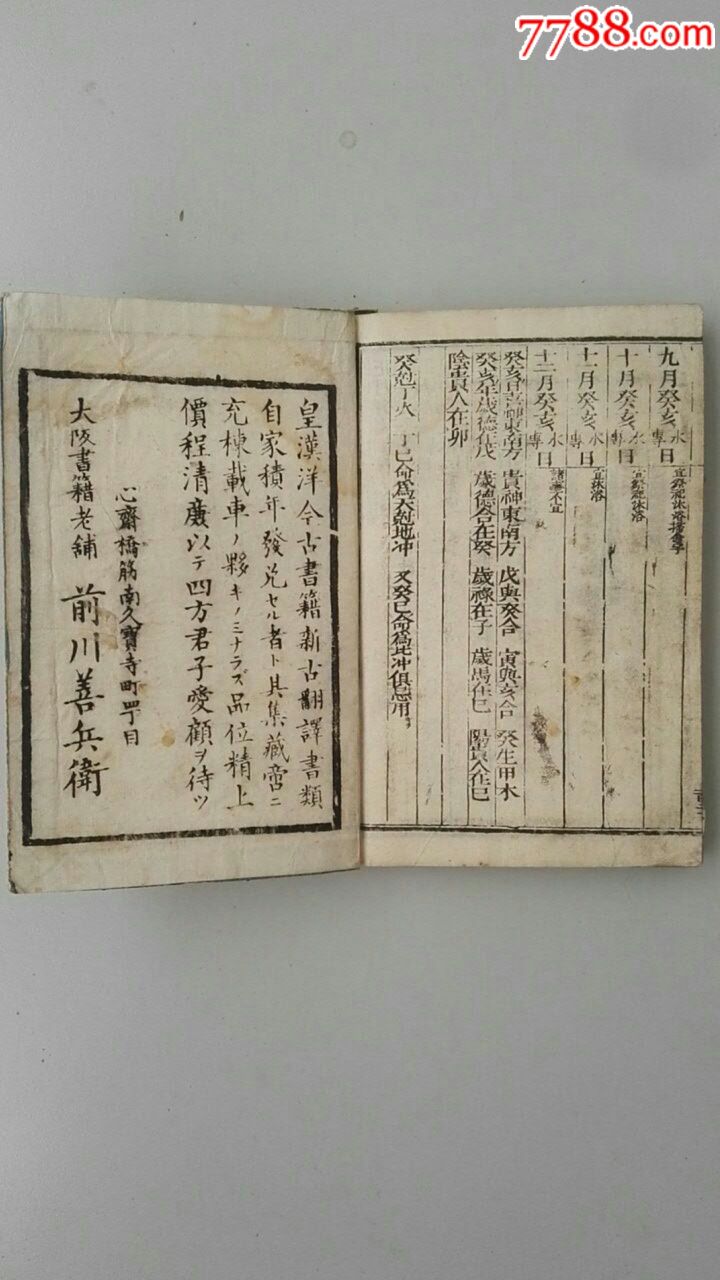 7788.com
九月癸亥水專日 宜祭祀沐浴掃舍宇
十月癸亥水專日 宜祭祀沐浴
十一月癸亥水專日 宜沐浴
十二月癸亥水專日 諸事不宜
癸亥日喜神東南方 貴神東南方 戊與癸合 寅與亥合 癸生甲木
癸為星歲德在戊 歲德合在癸 歲祿在子 歲馬在巳 陽貴人在巳
陰貴人在卯
癸尅丁火 丁巳命為天尅地冲 又癸巳命為地冲俱忌用
皇漢洋今古書籍新古翻譯書類
自家積年發兌セル者ト其集藏啻ニ
充棟載車ノ夥キノミナラズ品位精上
價程清廉以テ四方君子愛顧ヲ待ツ
心齋橋筋南久寶寺町四丁目
大阪書籍老舖 前川善兵衛